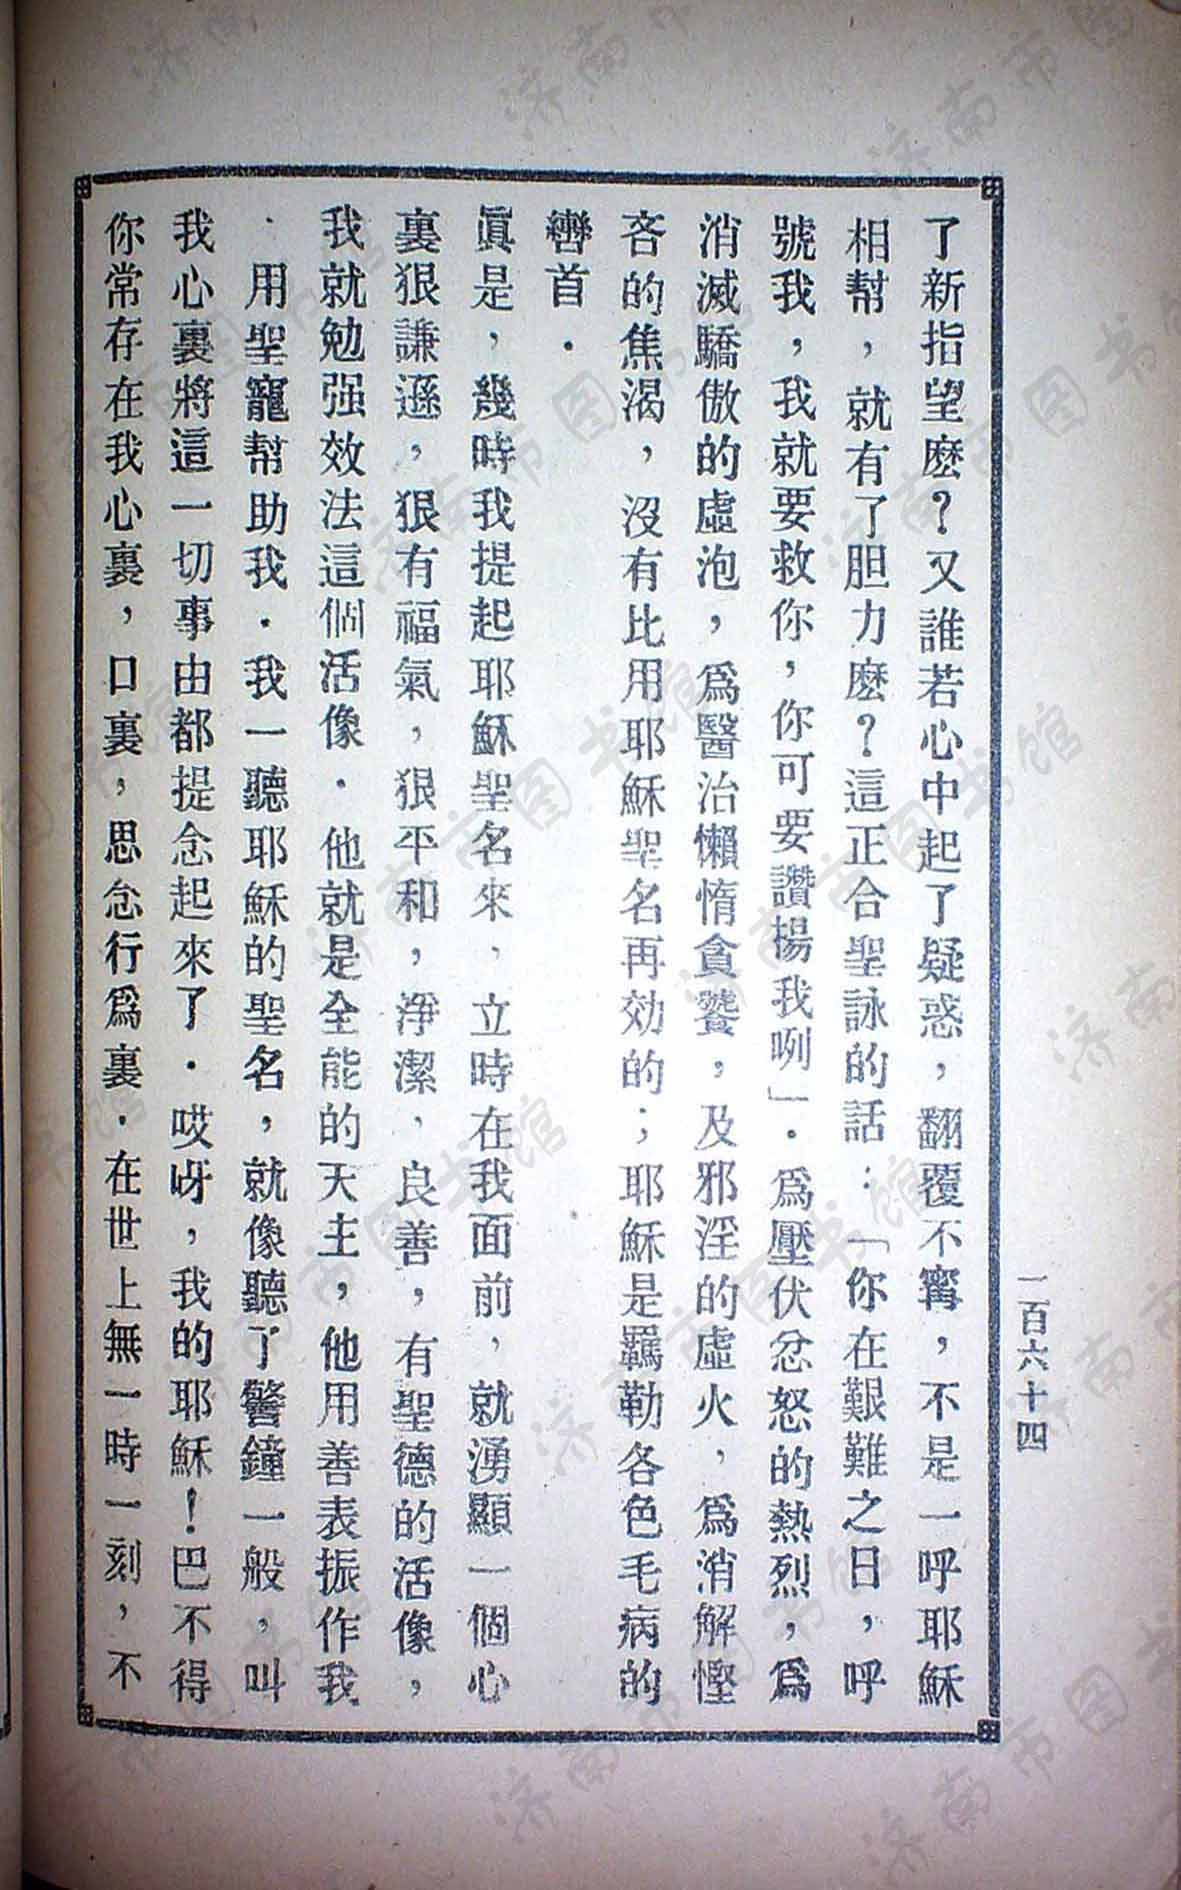 了新指望麽?又誰若心中起了疑惑,翻覆不寗,不是一呼耶穌
相幫,就有了胆力麽?這正合聖詠的話:「你在艱難之日,呼
號我,我就要救你,你可要讚揚我咧」.爲壓伏忿怒的熱烈,爲
消滅驕傲的虛泡,爲醫治懶惰貪饕,及邪淫的虛火,爲消解慳
吝的焦渴,沒有比用耶穌聖名再効的;耶穌是羈勒各色毛病的
轡首.
眞是,幾時我提起耶穌聖名來,立時在我面前,就湧顯一個心
裏狠謙遜,狠有福氣,狠平和,淨潔,良善,有聖德的活像,
我就勉强效法這個活像.他就是全能的天主,他用善表振作我
.用聖寵幫助我.我一聽耶穌的聖名,就像聽了警鐘一般,叫
我心裏將這一切事由都提念起來了.哎呀,我的耶穌!巴不得
你常存在我心裏,口裏,思念行爲裏.在世上無一時一刻,不
一百六十四
济南市图书馆